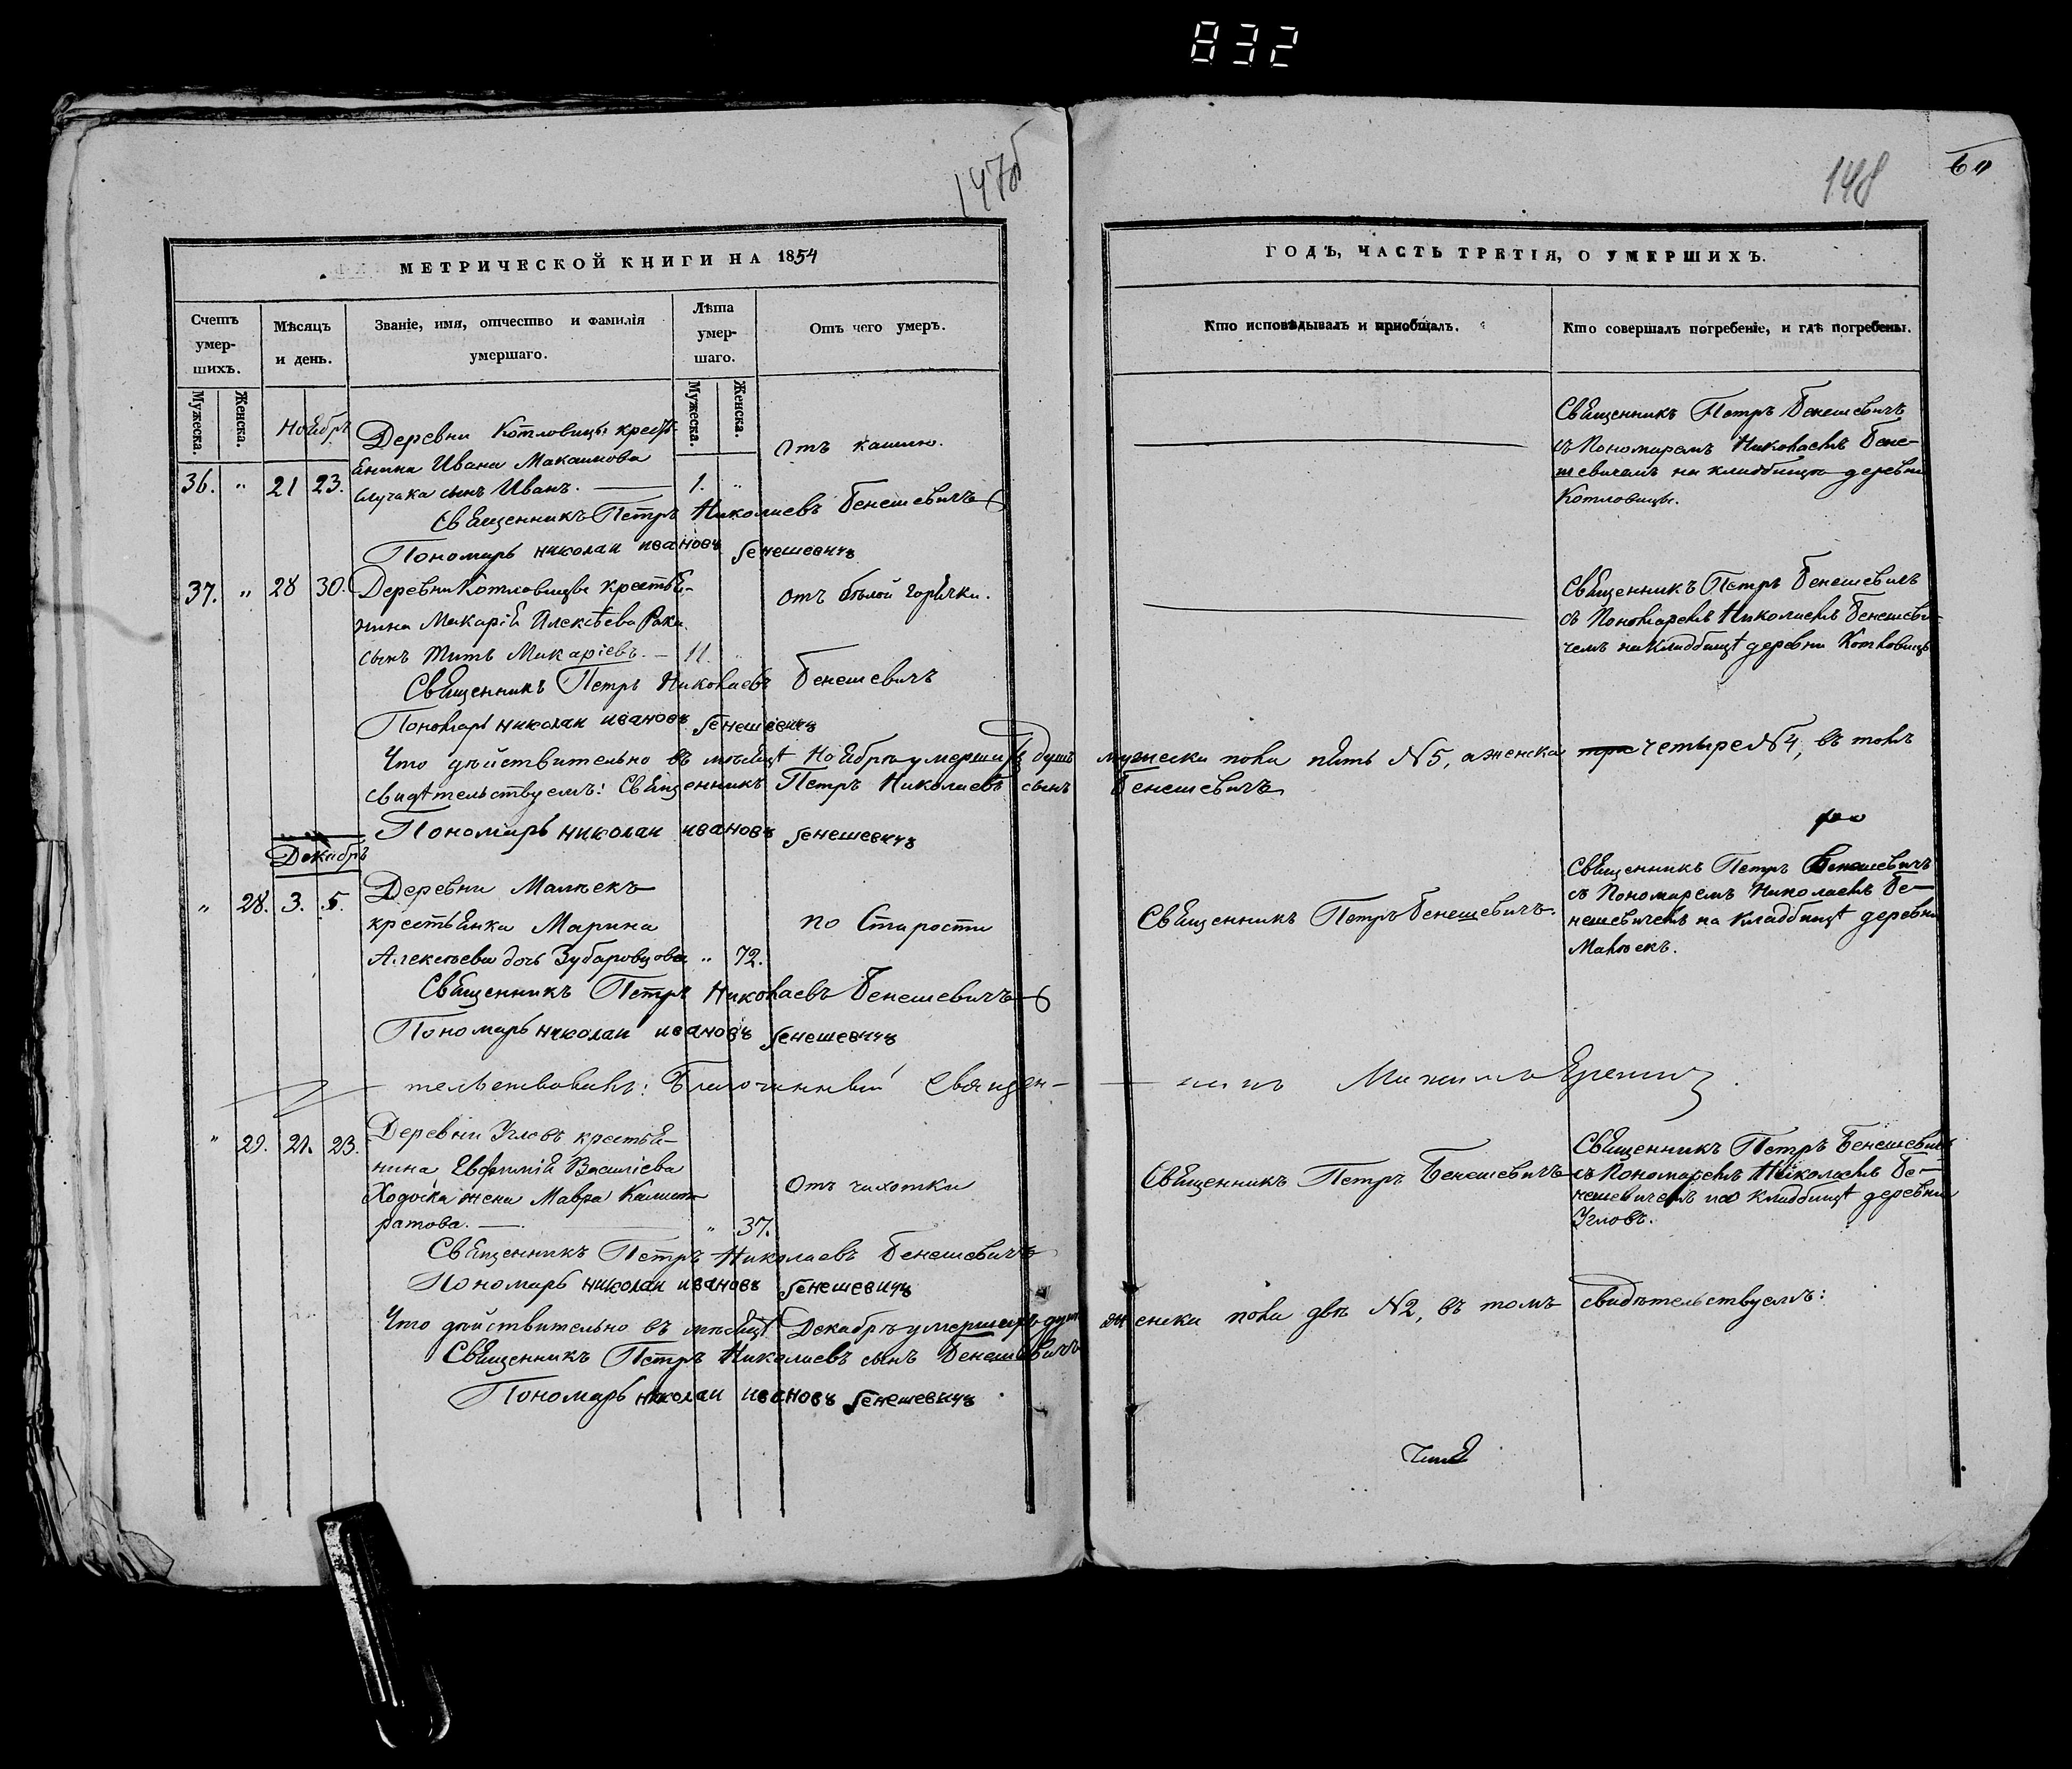 832
147об
148
60
МЕТРИЧЕСКОЙ КНИГИ НА 1854
ГОДЪ, ЧАСТЬ ТРЕТІЯ, О УМЕРШИХЪ.
Счетъ умер-шихъ.
Мѣсяцъ и день.
Званіе, имя, отчество и фамилія умершаго.
Лѣта умер-шаго.
Отъ чего умеръ.
Кто исповѣдывалъ и приобщалъ.
Кто совершалъ погребеніе, и гдѣ погребены.
Мужеска.
Женска.
Мужеска.
Женска.
Ноябрь
Деревни Котловицы кресть-
янина Ивана Максимова
36. " 21 23. Случака сынъ Иванъ. 1. "
Отъ кашлю.
Священникъ Петръ Бенешевичъ
съ Пономаремъ Николаемъ Бене-
шевичемъ на кладбищѣ деревни
Котловицы.
Священникъ Петръ Николаевъ Бенешевичъ
Пономарь николаи ивановъ бенешевичъ
37. " 28 30. Деревни Котловицы крестья-
нина Макарія Алексѣева Рака
сынъ Титъ Макаріевъ. 11. "
отъ бѣлой горячки.
Священникъ Петръ Бенешевичъ
съ Пономаремъ Николаемъ Бенешеви-
чемъ на кладбищѣ деревни Котловицы
Священникъ Петръ Николаевъ Бенешевичъ
Пономарь николаи ивановъ бенешевичъ
Что дѣйствительно въ мѣсяцѣ Ноябрѣ умершихъ душъ мужеска пола пять №5, а женска три четыре №4, въ томъ
свидѣтельствуемъ: Священникъ Петръ Николаевъ сынъ Бенешевичъ
Пономарь николаи ивановъ бенешевичъ
Декабрь
" 28. 3. 5. Деревни Малѣекъ
крестьянка Марина
Алексѣева дочь Зубаровцова " 72.
по Старости
Священникъ Петръ Бенешевичъ.
Священникъ Петръ Бенешевичъ
съ Пономаремъ Николаемъ Бе-
нешевичемъ на кладбищѣ деревни
Малѣекъ.
Священникъ Петръ Николаевъ Бенешевичъ
Пономарь николаи ивановъ бенешевичъ
тельствовалъ: Благочинный Священ-никъ Михаилъ
" 29. 21. 23. Деревни Угловъ крестья-
нина Евфимія Василіева
Ходоска жена Мавра Калист-
ратова. " 37.
Отъ чихотки
Священникъ Петръ Бенешевичъ
Священникъ Петръ Бенешевичъ
съ Пономаремъ Николаемъ Бе-
нешевичемъ на кладбищѣ деревни
Угловъ.
Священникъ Петръ Николаевъ Бенешевичъ
Пономарь николаи ивановъ бенешевичъ
Что дѣйствительно въ мѣсяцѣ Декабрѣ умершихъ душъ женска пола двѣ №2, въ томъ свидѣтельствуемъ:
Священникъ Петръ Николаевъ сынъ Бенешевичъ
Пономарь николаи ивановъ бенешевичъ